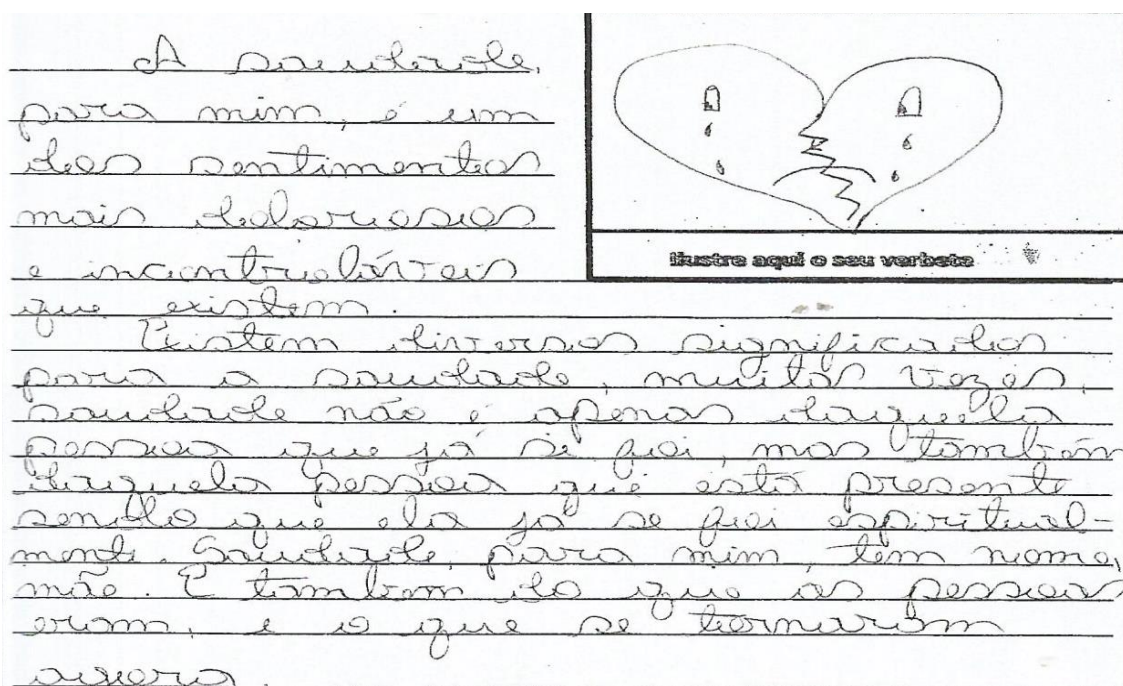 A saudade,
para mim, é um
dos sentimentos
mais dolorosos
e incontroláveis
que existem.
Ilustre aqui o seu verbete
Existem diversos significados
para a saudade, muitas vezes,
saudade não é apenas daquela
pessoa que já se foi, mas também
daquela pessoa que está presente
sendo que ela já se foi espiritual-
mente. Saudade, para mim, tem nome,
mãe. E também do que as pessoas
eram, e o que se tornaram
agora.